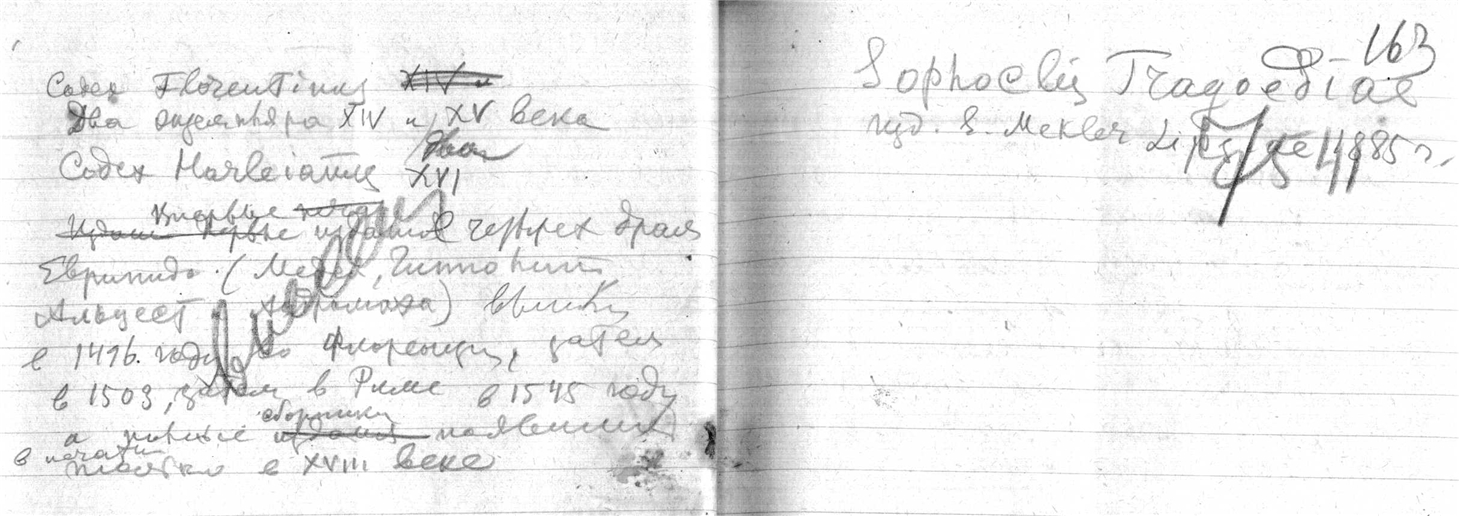 Codex Florentinus XIV и
Два экземпляра XIV и XV века
Codex Harleianus XVI
впервые
Издан первые издание четырех драм
Еврипида (Медея, Гипполит
Альцест Андромаха) вышли
в 1496 году во Флоренции, затем
в 1503, затем в Риме в 1545 году
сборники
а полные издания появились
в печати
только в XVIII веке
163
Sophoclis Tragoediae
изд. S. Mekler Lipsiae 1885 г.